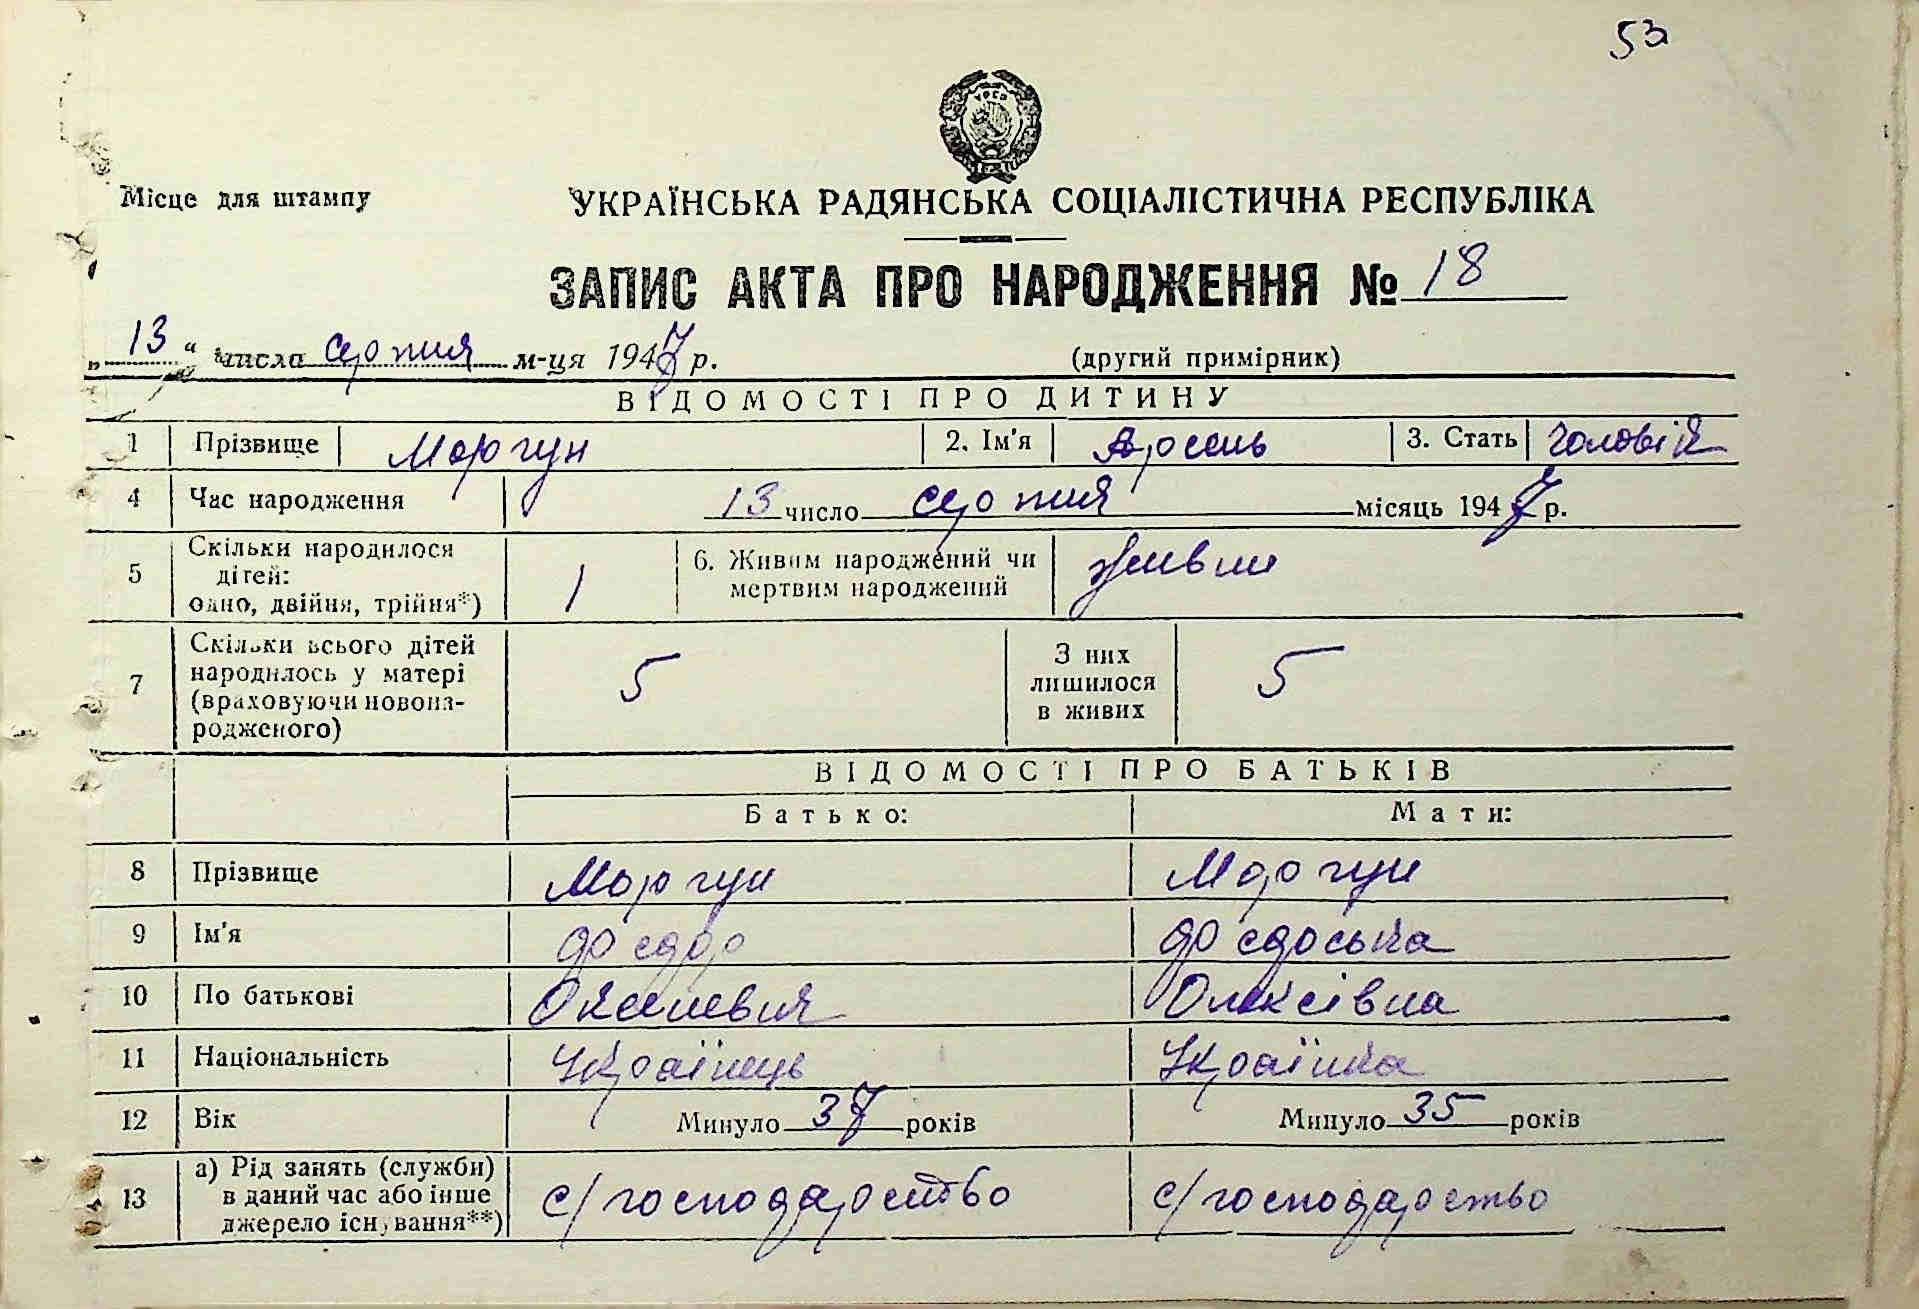 53
УРСР
Місце для штампу
УКРАЇНСЬКА РАДЯНСЬКА СОЦІАЛІСТИЧНА РЕСПУБЛІКА
ЗАПИС АКТА ПРО НАРОДЖЕННЯ № 18
„13“ числа серпня м-ця 1947 р. (другий примірник)
ВІДОМОСТІ ПРО ДИТИНУ
1 Прізвище Моргун 2. Ім'я Арсень 3. Стать чоловік
4 Час народження 13 число серпня місяць 1947 р.
5 Скільки народилося дітей: одно, двійня, трійня*) 1 6. Живим народжений чи мертвим народжений живим
7 Скільки всього дітей народилось у матері (враховуючи новона-родженого) 5 З них лишилося в живих 5
ВІДОМОСТІ ПРО БАТЬКІВ
Батько: Мати:
8 Прізвище Моргун Моргун
9 Ім'я Федор Федоська
10 По батькові Олексівна
11 Національність Українець Українка
12 Вік Минуло 37 років Минуло 35 років
13 а) Рід занять (служби) в даний час або інше джерело існування**) с/господарство с/господарство